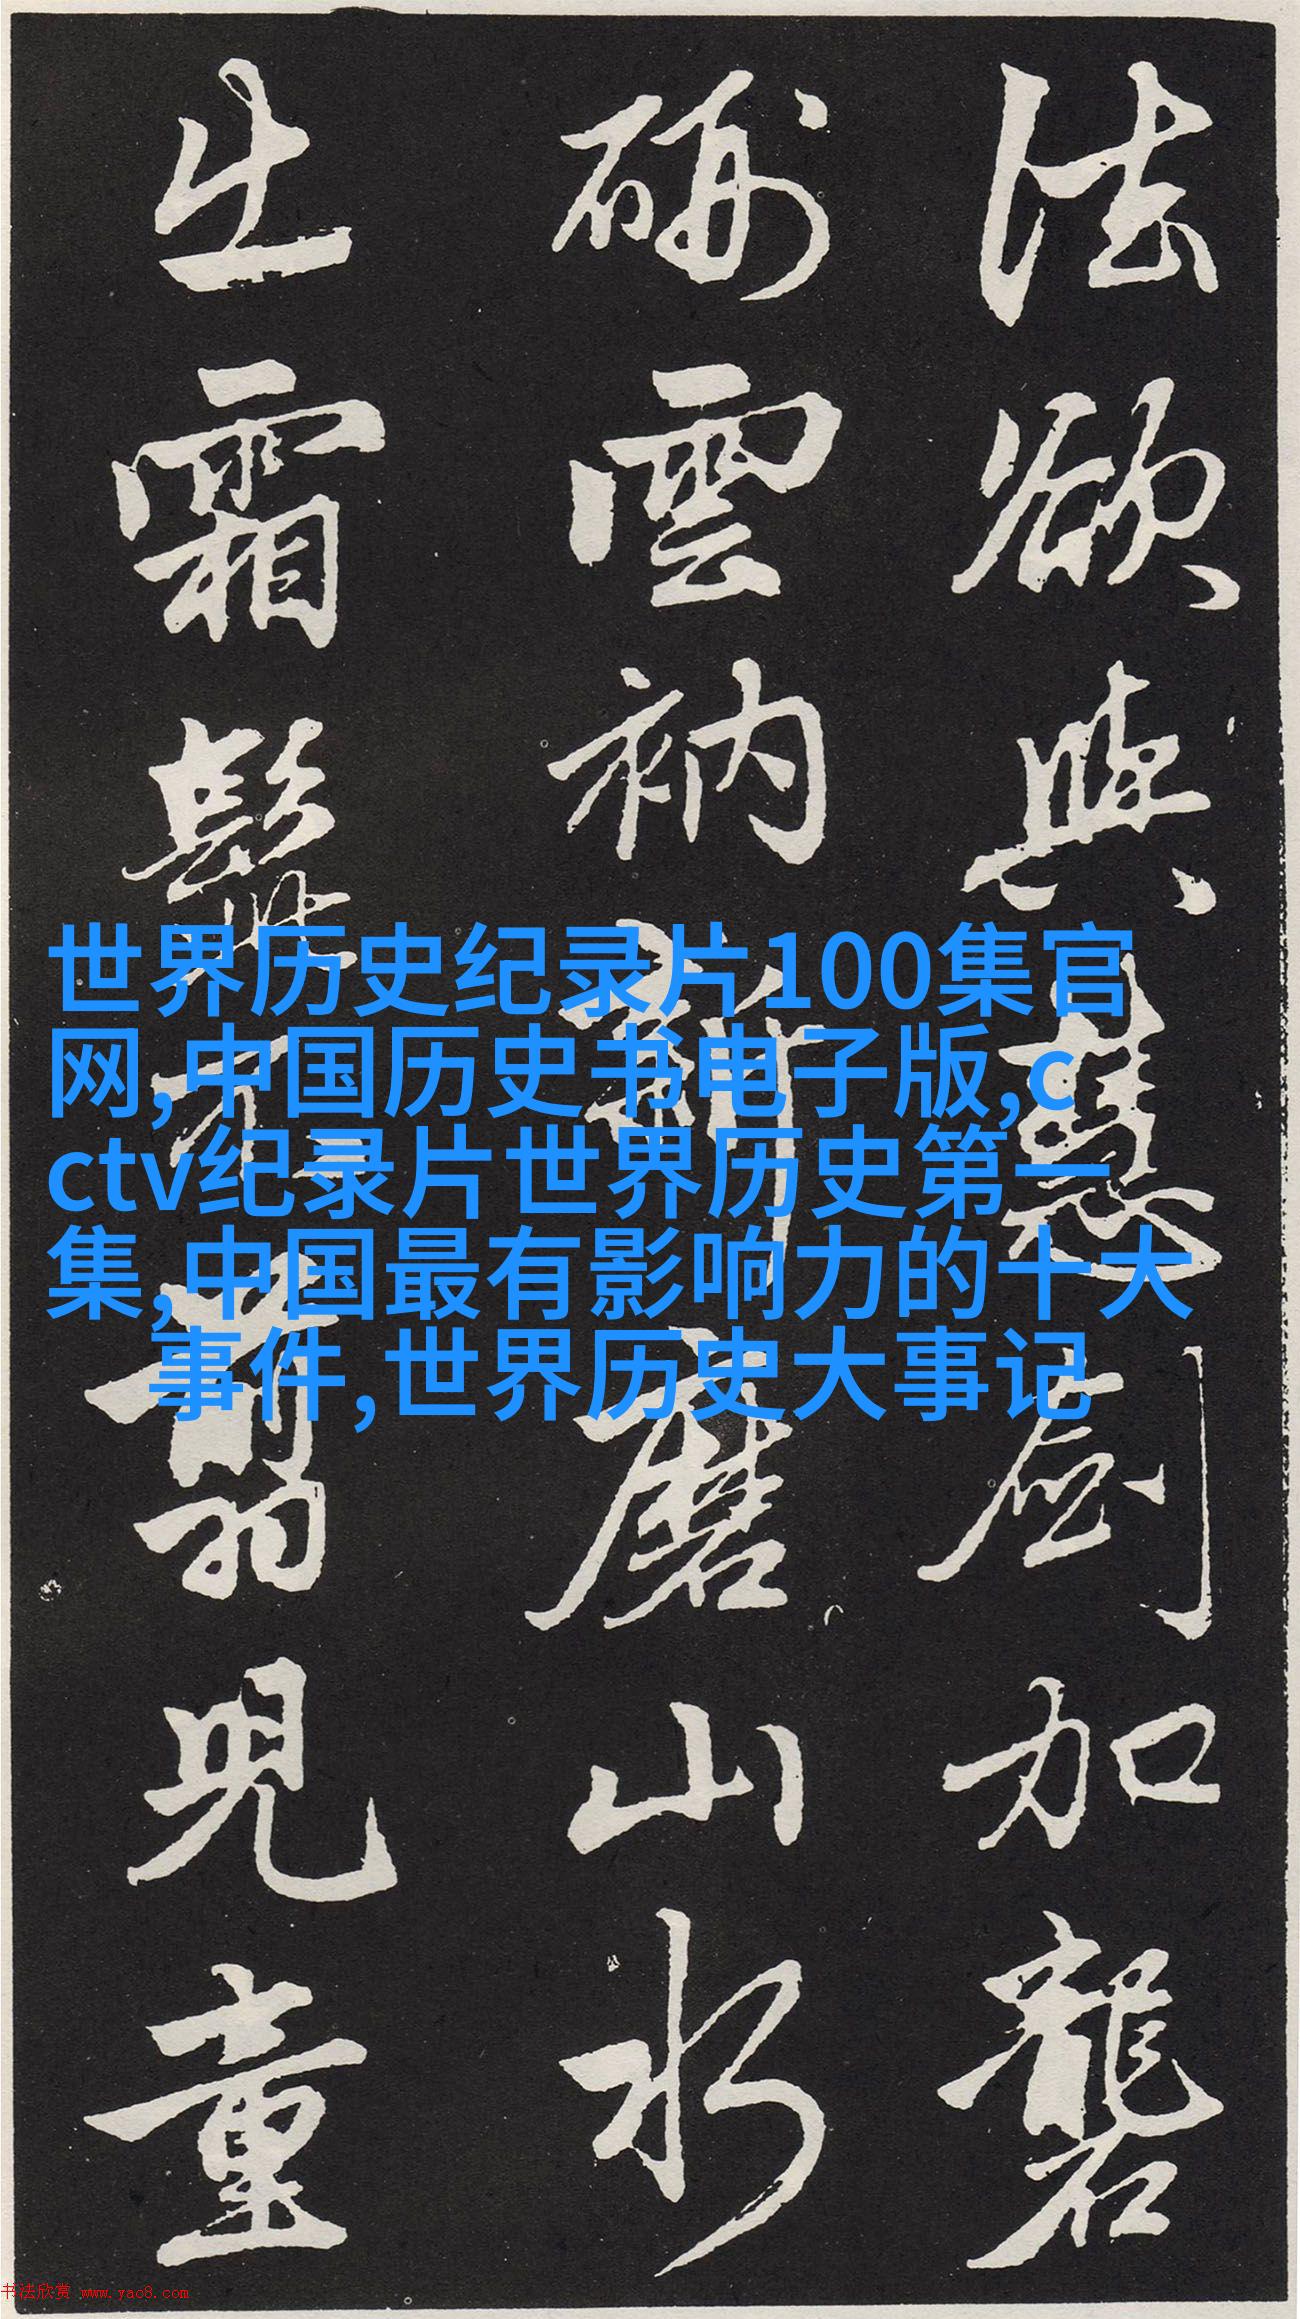 法欲與慧劒加礱
硎雲衲新磨山水
出霜髭不翦兒童
世界历史纪录片100集官
网,中国历史书电子版,c
ctv纪录片世界历史第一
集,中国最有影响力的十大
事件,世界历史大事记
书法欣赏 www.yac8.com